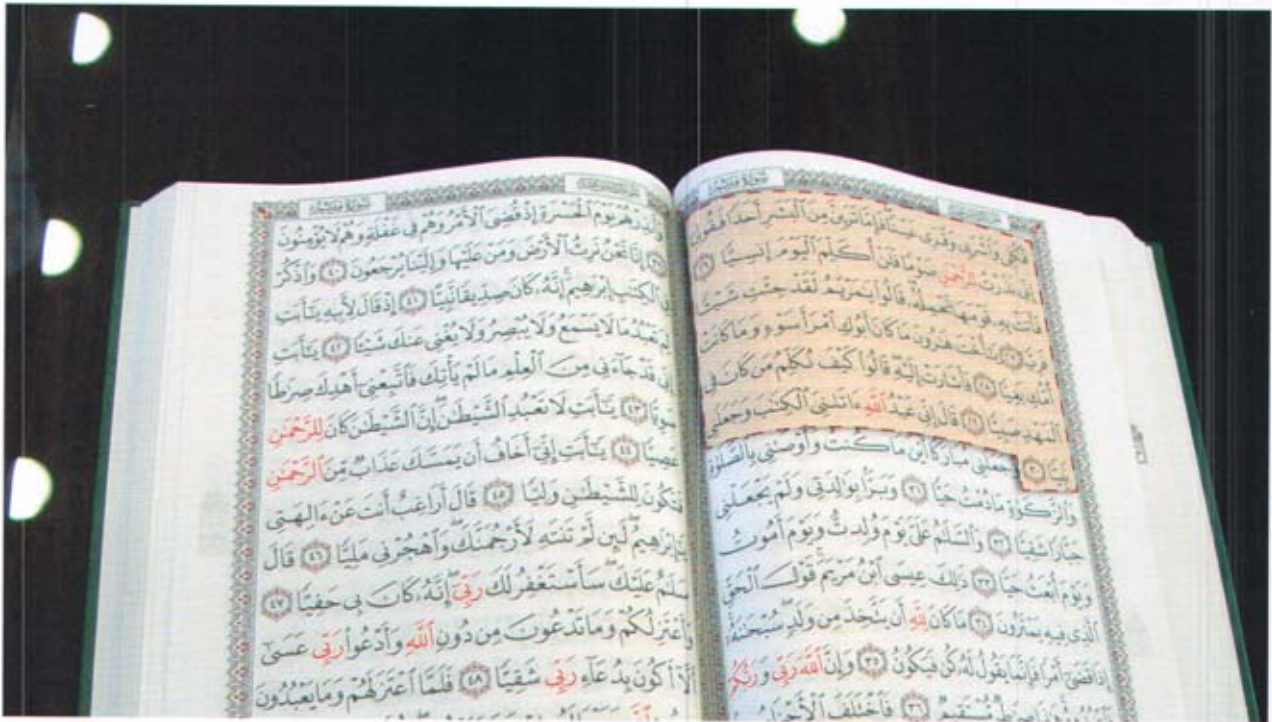 سورة مريم
فكلي واشربي وقري عينا فإما ترين من البشر أحدا فقولي
إني نذرت للرحمن صوما فلن أكلم اليوم إنسيا ٢٦
فأتت به قومها تحمله قالوا يمريم لقد جئت شيئا
فريا ٢٧ يأخت هرون ما كان أبوك امرأ سوء وما كانت
أمك بغيا ٢٨ فأشارت إليه قالوا كيف نكلم من كان في
المهد صبيا ٢٩ قال إني عبد الله ءاتىني الكتب وجعلني
نبيا ٣٠ وجعلني مباركا أين ما كنت وأوصني بالصلوة
والزكوة ما دمت حيا ٣١ وبرا بولدتي ولم يجعلني
جبارا شقيا ٣٢ والسلم علي يوم ولدت ويوم أموت
ويوم أبعث حيا ٣٣ ذلك عيسى ابن مريم قول الحق
الذي فيه يمترون ٣٤ ما كان لله أن يتخذ من ولد سبحنه
إذا قضى أمرا فإنما يقول له كن فيكون ٣٥ وإن الله ربي وربكم
مستقيم ٣٦ فاختلف الأحزاب
سورة مريم
وأنذرهم يوم الحسرة إذ قضي الأمر وهم في غفلة وهم لا يؤمنون
٣٩ إنا نحن نرث الأرض ومن عليها وإلينا يرجعون ٤٠ واذكر
في الكتب إبرهيم إنه كان صديقا نبيا ٤١ إذ قال لأبيه يأبت
لم تعبد ما لا يسمع ولا يبصر ولا يغني عنك شيئا ٤٢ يأبت
إني قد جاءني من العلم ما لم يأتك فاتبعني أهدك صرطا
سويا ٤٣ يأبت لا تعبد الشيطن إن الشيطن كان للرحمن
عصيا ٤٤ يأبت إني أخاف أن يمسك عذاب من الرحمن
فتكون للشيطن وليا ٤٥ قال أراغب أنت عن ءالهتي
يإبرهيم لئن لم تنته لأرجمنك واهجرني مليا ٤٦ قال
سلم عليك سأستغفر لك ربي إنه كان بي حفيا ٤٧
وأعتزلكم وما تدعون من دون الله وأدعوا ربي عسى
ألا أكون بدعاء ربي شقيا ٤٨ فلما اعتزلهم وما يعبدون